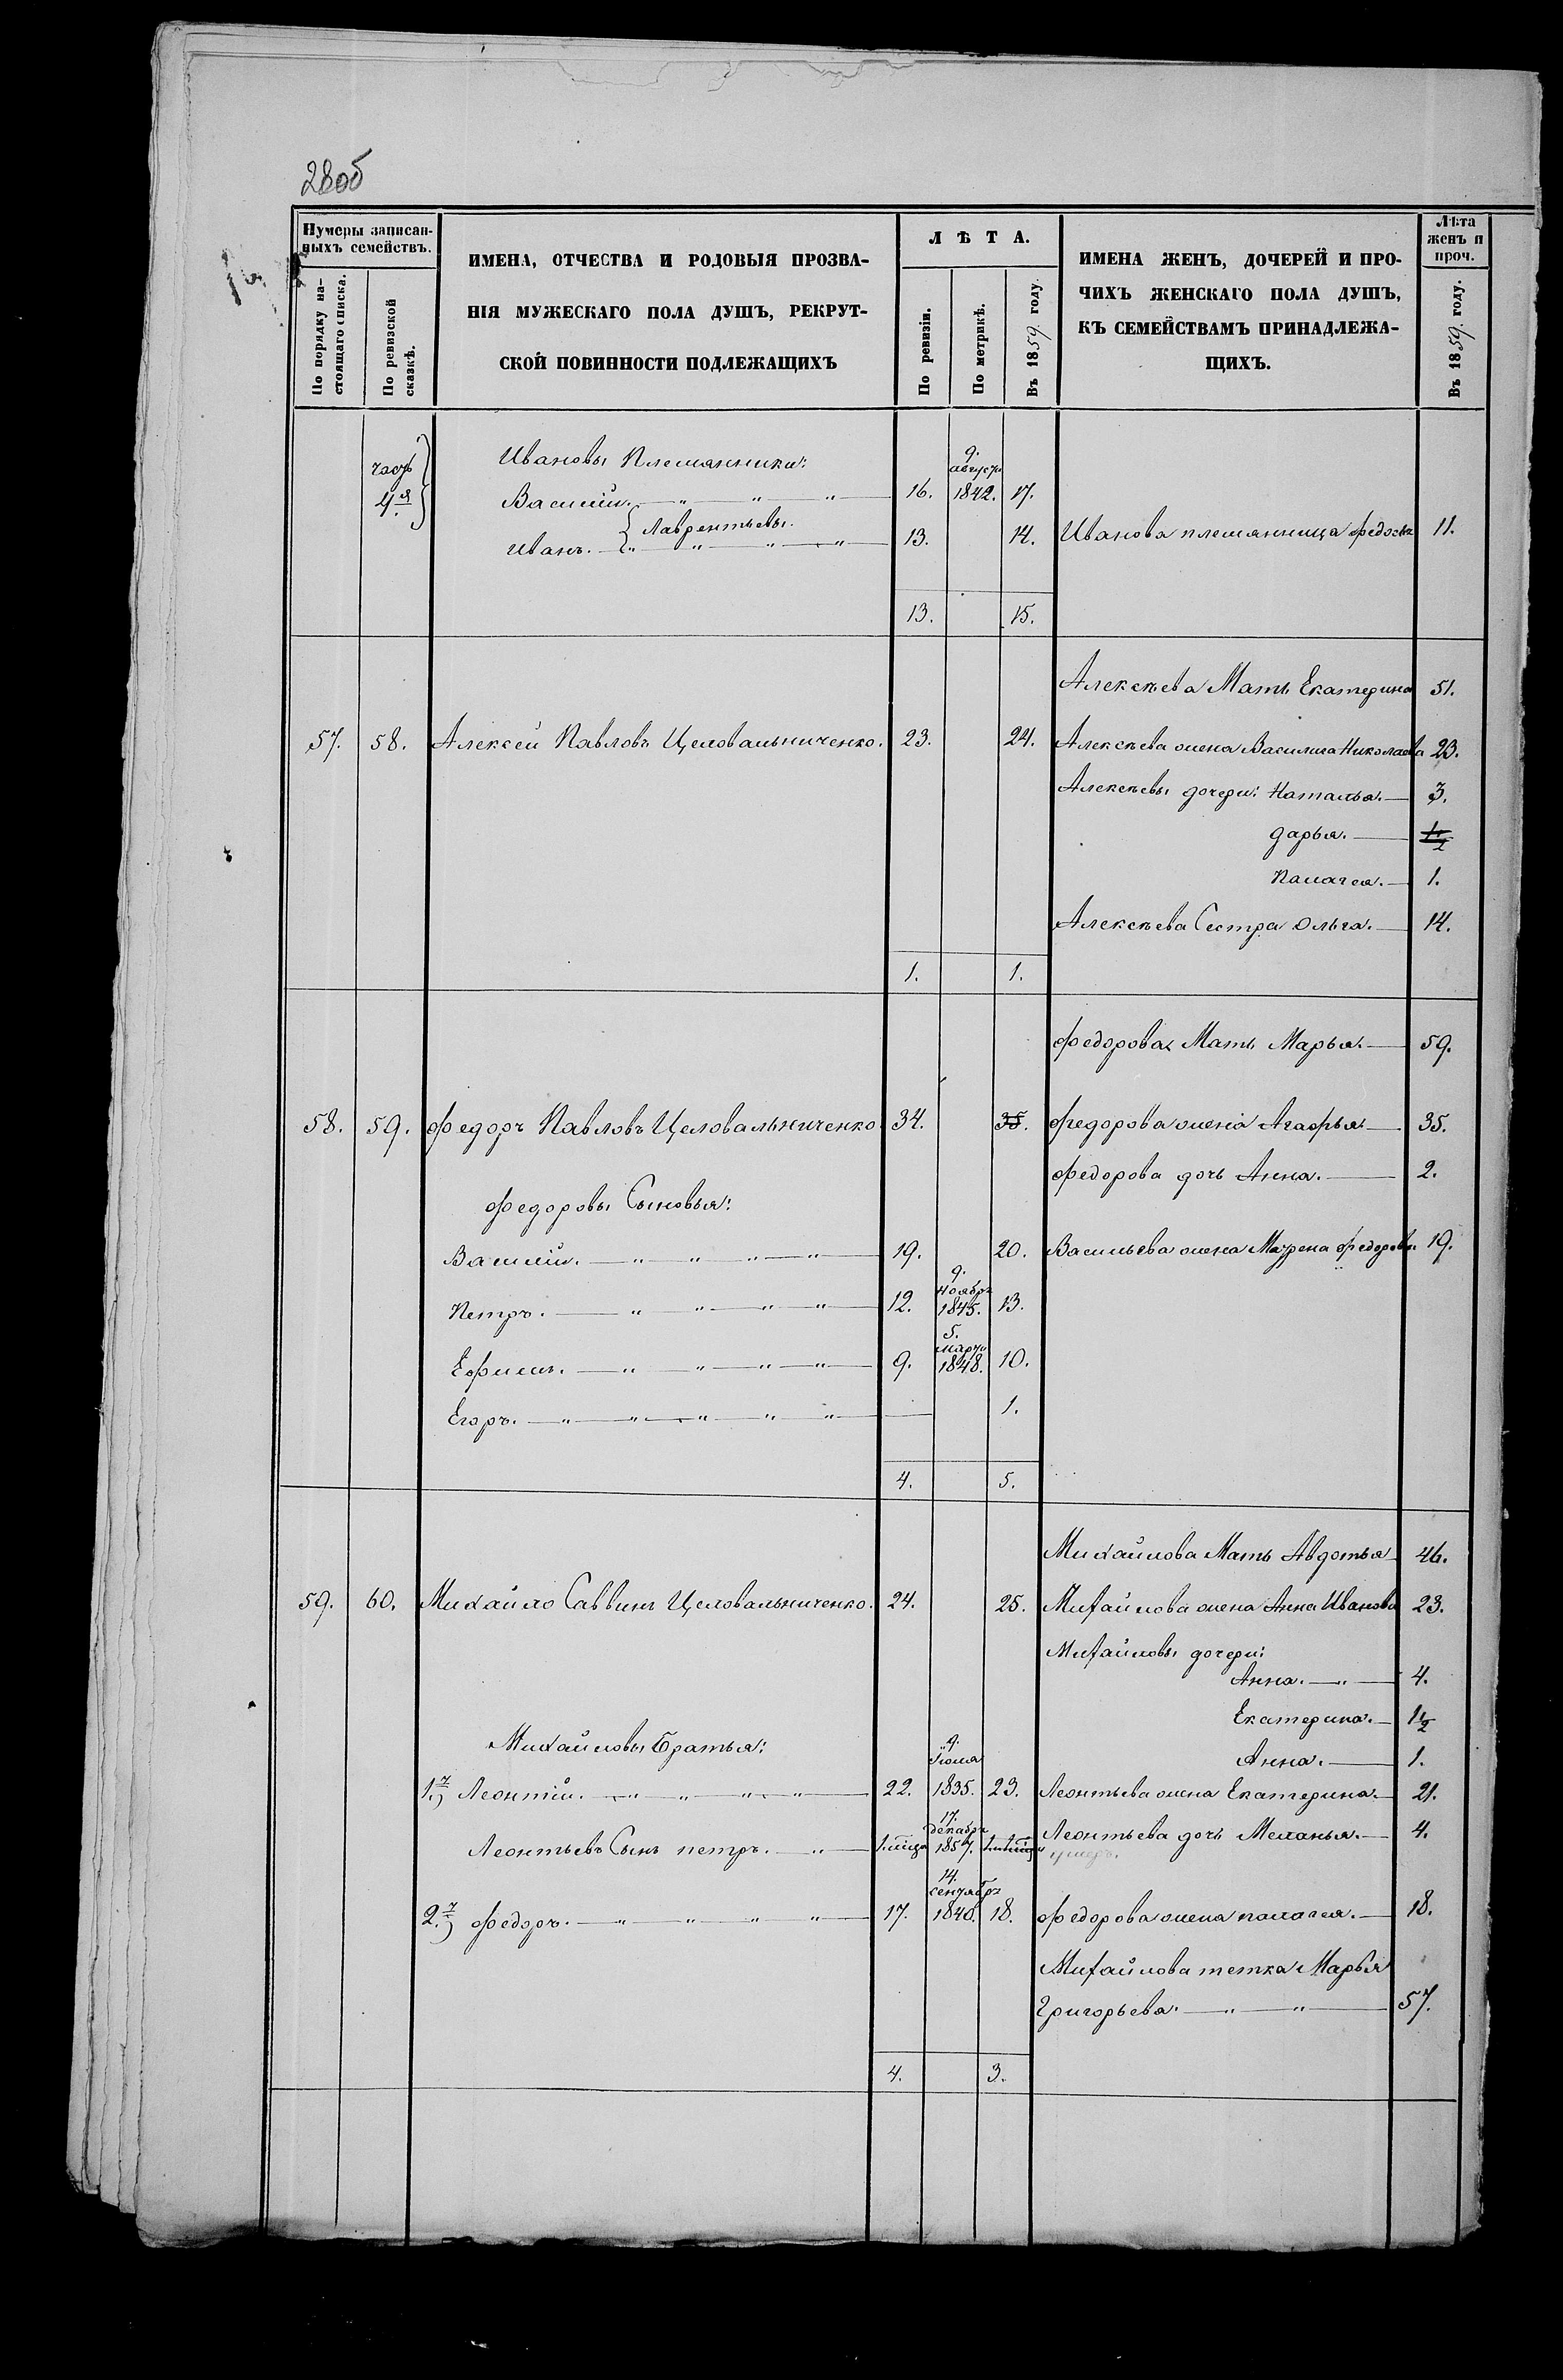 28об
Нумеры записан-
ныхъ семействъ.
По порядку на-
стоящаго списка.
По ревизской
сказкѣ.
ИМЕНА, ОТЧЕСТВА И РОДОВЫЯ ПРОЗВА-
НІЯ МУЖЕСКАГО ПОЛА ДУШЪ, РЕКРУТ-
СКОЙ ПОВИННОСТИ ПОДЛЕЖАЩИХЪ
ЛѢТА.
По ревизіи.
По метрикѣ.
Въ 1859 году.
ИМЕНА ЖЕНЪ, ДОЧЕРЕЙ И ПРО-
ЧИХЪ ЖЕНСКАГО ПОЛА ДУШЪ,
КЪ СЕМЕЙСТВАМЪ ПРИНАДЛЕЖА-
ЩИХЪ.
Лѣта
женъ и
проч.
Въ 1859 году.
часть
4я
Ивановы Племянники:
9.
августа
Василій. 16. 1842. 17.
Лаврентьевы.
Иванъ. 13. 14. Иванова племянница Федосья 11.
13. 15.
Алексѣева Мать Екатерина 51.
57. 58. Алексѣй Павловъ Целовальниченко. 23. 24. Алексѣева жена Василиса Николаева 23.
Алексѣевы дочери: Наталья. 3.
Дарья. 1 1/2
Палагея. 1.
Алексѣева Сестра Ольга. 14.
1. 1.
Федорова Мать Марья. 59.
58. 59. Федоръ Павловъ Целовальниченко. 34. 35. Федорова жена Агафья 35.
Федорова дочь Анна. 2.
Федоровы Сыновья:
Василій. 19. 20. Васильева жена Матрена Федорова. 19.
9.
ноября
Петръ. 12. 1845. 13.
5.
марта
Ефимъ. 9. 1848. 10.
Егоръ. 1.
4. 5.
Михайлова Мать Авдотья 46.
59. 60. Михайло Саввинъ Целовальниченко. 24. 25. Михайлова жена Анна Иванова 23.
Михайловы дочери:
Анна. 4.
Екатерина. 1 1/2
Михайловы Братья:
9.
Іюля
Анна. 1.
1.) Леонтій. 22. 1835. 23. Леонтьева жена Екатерина. 21.
17.
декабря
Леонтьевъ Сынъ Петръ. 1. мѣсяца 1857. Леонтьева дочь Меланья. 4.
умеръ.
14.
сентября
2.) Федоръ. 17. 1840. 18. Федорова жена Палагея. 18.
Михайлова тетка Марья
Григорьева. 57.
4. 3.